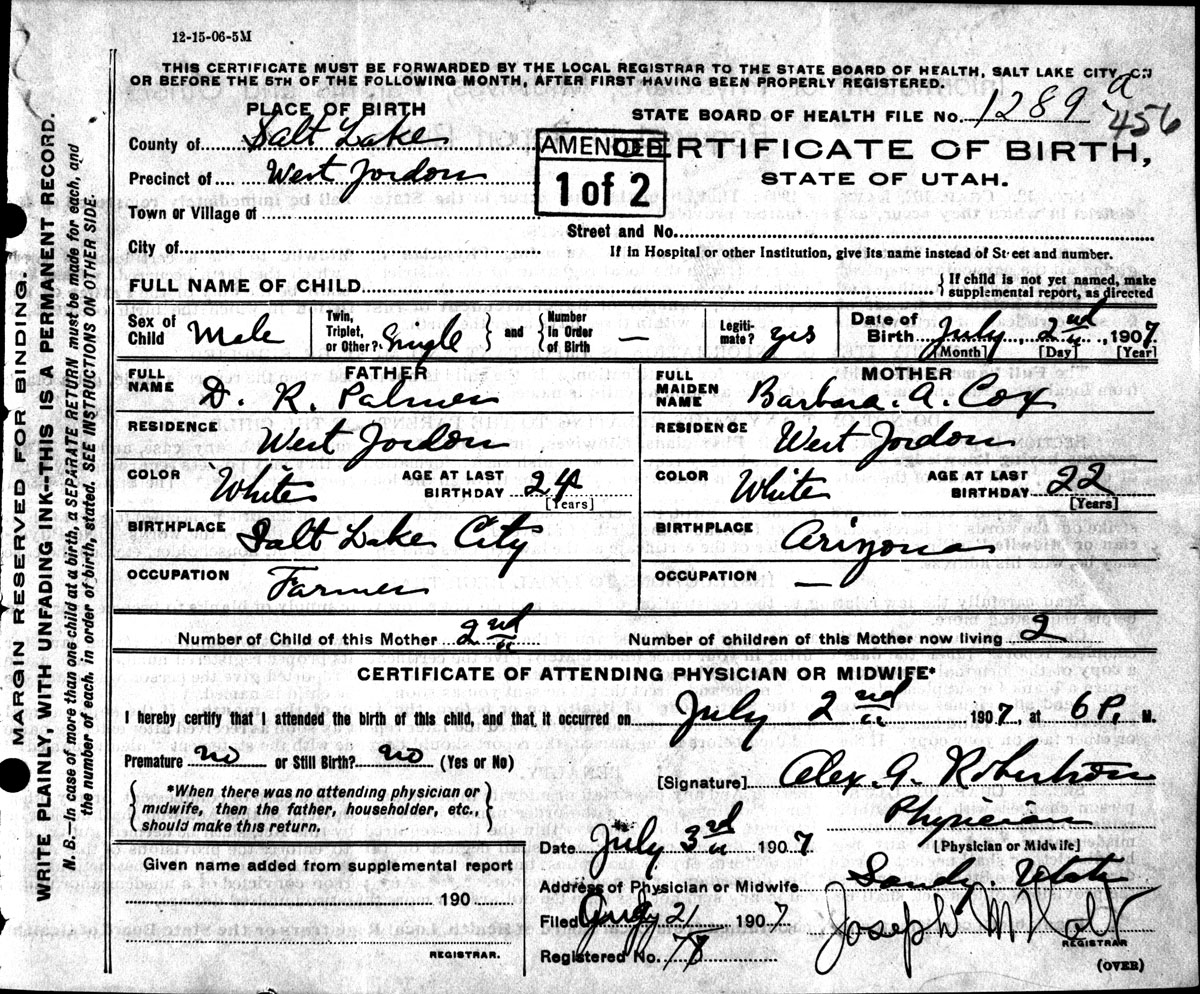 12-15-06-5M
THIS CERTIFICATE MUST BE FORWARDED BY THE LOCAL REGISTRAR TO THE STATE BOARD OF HEALTH, SALT LAKE CITY, ON
OR BEFORE THE 5TH OF THE FOLLOWING MONTH, AFTER FIRST HAVING BEEN PROPERLY REGISTERED.
PLACE OF BIRTH
STATE BOARD OF HEALTH FILE No. 1289 a 456
County of Salt Lake
AMENDED
1 of 2
CERTIFICATE OF BIRTH,
STATE OF UTAH.
Precinct of West Jordon
Town or Village of
Street and No.
City of
If in Hospital or other Institution, give its name instead of Street and number.
FULL NAME OF CHILD
If child is not yet named, make supplemental report, as directed
Sex of Child Male
Twin, Triplet, or Other? Single and Number In Order of Birth —
Legiti-mate? yes
Date of Birth July 2nd, 1907
[Month] [Day] [Year]
FATHER
FULL NAME D. R. Palmer
RESIDENCE West Jordon
COLOR White AGE AT LAST BIRTHDAY 24 [Years]
BIRTHPLACE Salt Lake City
OCCUPATION Farmer
MOTHER
FULL MAIDEN NAME Barbara. A. Cox
RESIDENCE West Jordon
COLOR White AGE AT LAST BIRTHDAY 22 [Years]
BIRTHPLACE Arizona
OCCUPATION —
Number of Child of this Mother 2nd Number of children of this Mother now living 2
CERTIFICATE OF ATTENDING PHYSICIAN OR MIDWIFE*
I hereby certify that I attended the birth of this child, and that it occurred on July 2nd 1907, at 6 P. M.
Premature no or Still Birth? no (Yes or No)
*When there was no attending physician or
midwife, then the father, householder, etc.,
should make this return.
[Signature] Alex. G. Robertson
Physician
[Physician or Midwife]
Date July 3rd 1907.
Address of Physician or Midwife Sandy. Utah
Filed 21 1907
Joseph M Holt
REGISTRAR
Registered No. 78
(OVER)
Given name added from supplemental report
190
REGISTRAR.
MARGIN RESERVED FOR BINDING.
WRITE PLAINLY, WITH UNFADING INK--THIS IS A PERMANENT RECORD.
N. B.--In case of more than one child at a birth, a SEPARATE RETURN must be made for each, and
the number of each, in order of birth, stated. SEE INSTRUCTIONS ON OTHER SIDE.